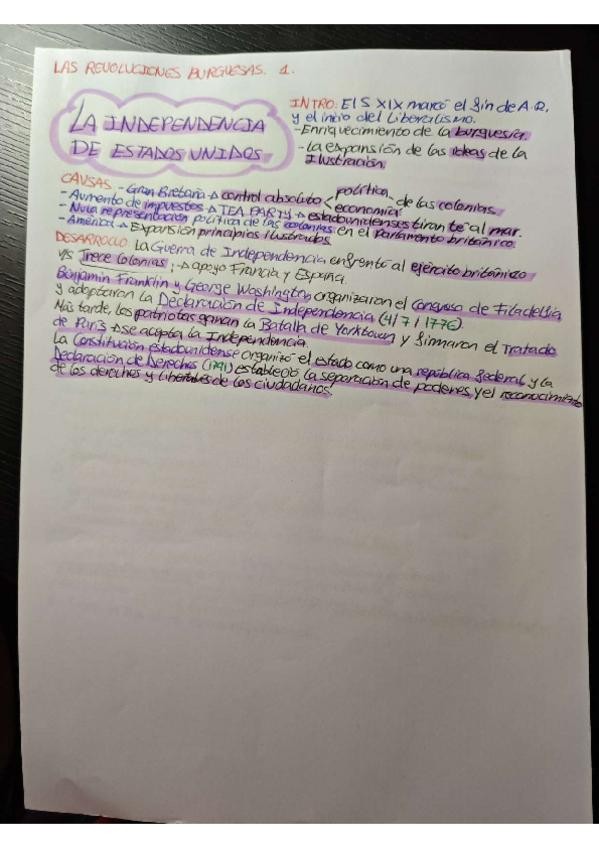 LAS REVOLUCIONES BURGUESAS. 1.
LA INDEPENDENCIA
DE ESTADOS UNIDOS
INTRO: El S XIX marcó el fin de A.R,
y el inicio del Liberalismo.
-Enriquecimiento de la burguesía.
-La expansión de las ideas de la
Ilustración.
CAUSAS - Gran Bretaña → control absoluto < política economía - de las colonias.
-Aumento de impuestos → TEA PARTY → estadounidenses tiran te al mar.
-Nula representación política de las colonias en el Parlamento británico.
-América → Expansión principios ilustrados
DESARROLLO La Guerra de Independencia enfrentó al ejército británico
v/s Trece Colonias; → apoyo Francia y España.
Benjamin Franklin y George Washington organizaron el Congreso de Filadelfia
y adoptaron la Declaración de Independencia (4/7/1776).
Más tarde, los patriotas ganan la Batalla de Yorktown y firmaron el Tratado
de París → se acepta la Independencia.
La Constitución estadounidense organizó el estado como una república federal y la
Declaración de Derechos (1791) estableció la separación de poderes y el reconocimiento
de los derechos y libertades de los ciudadanos.